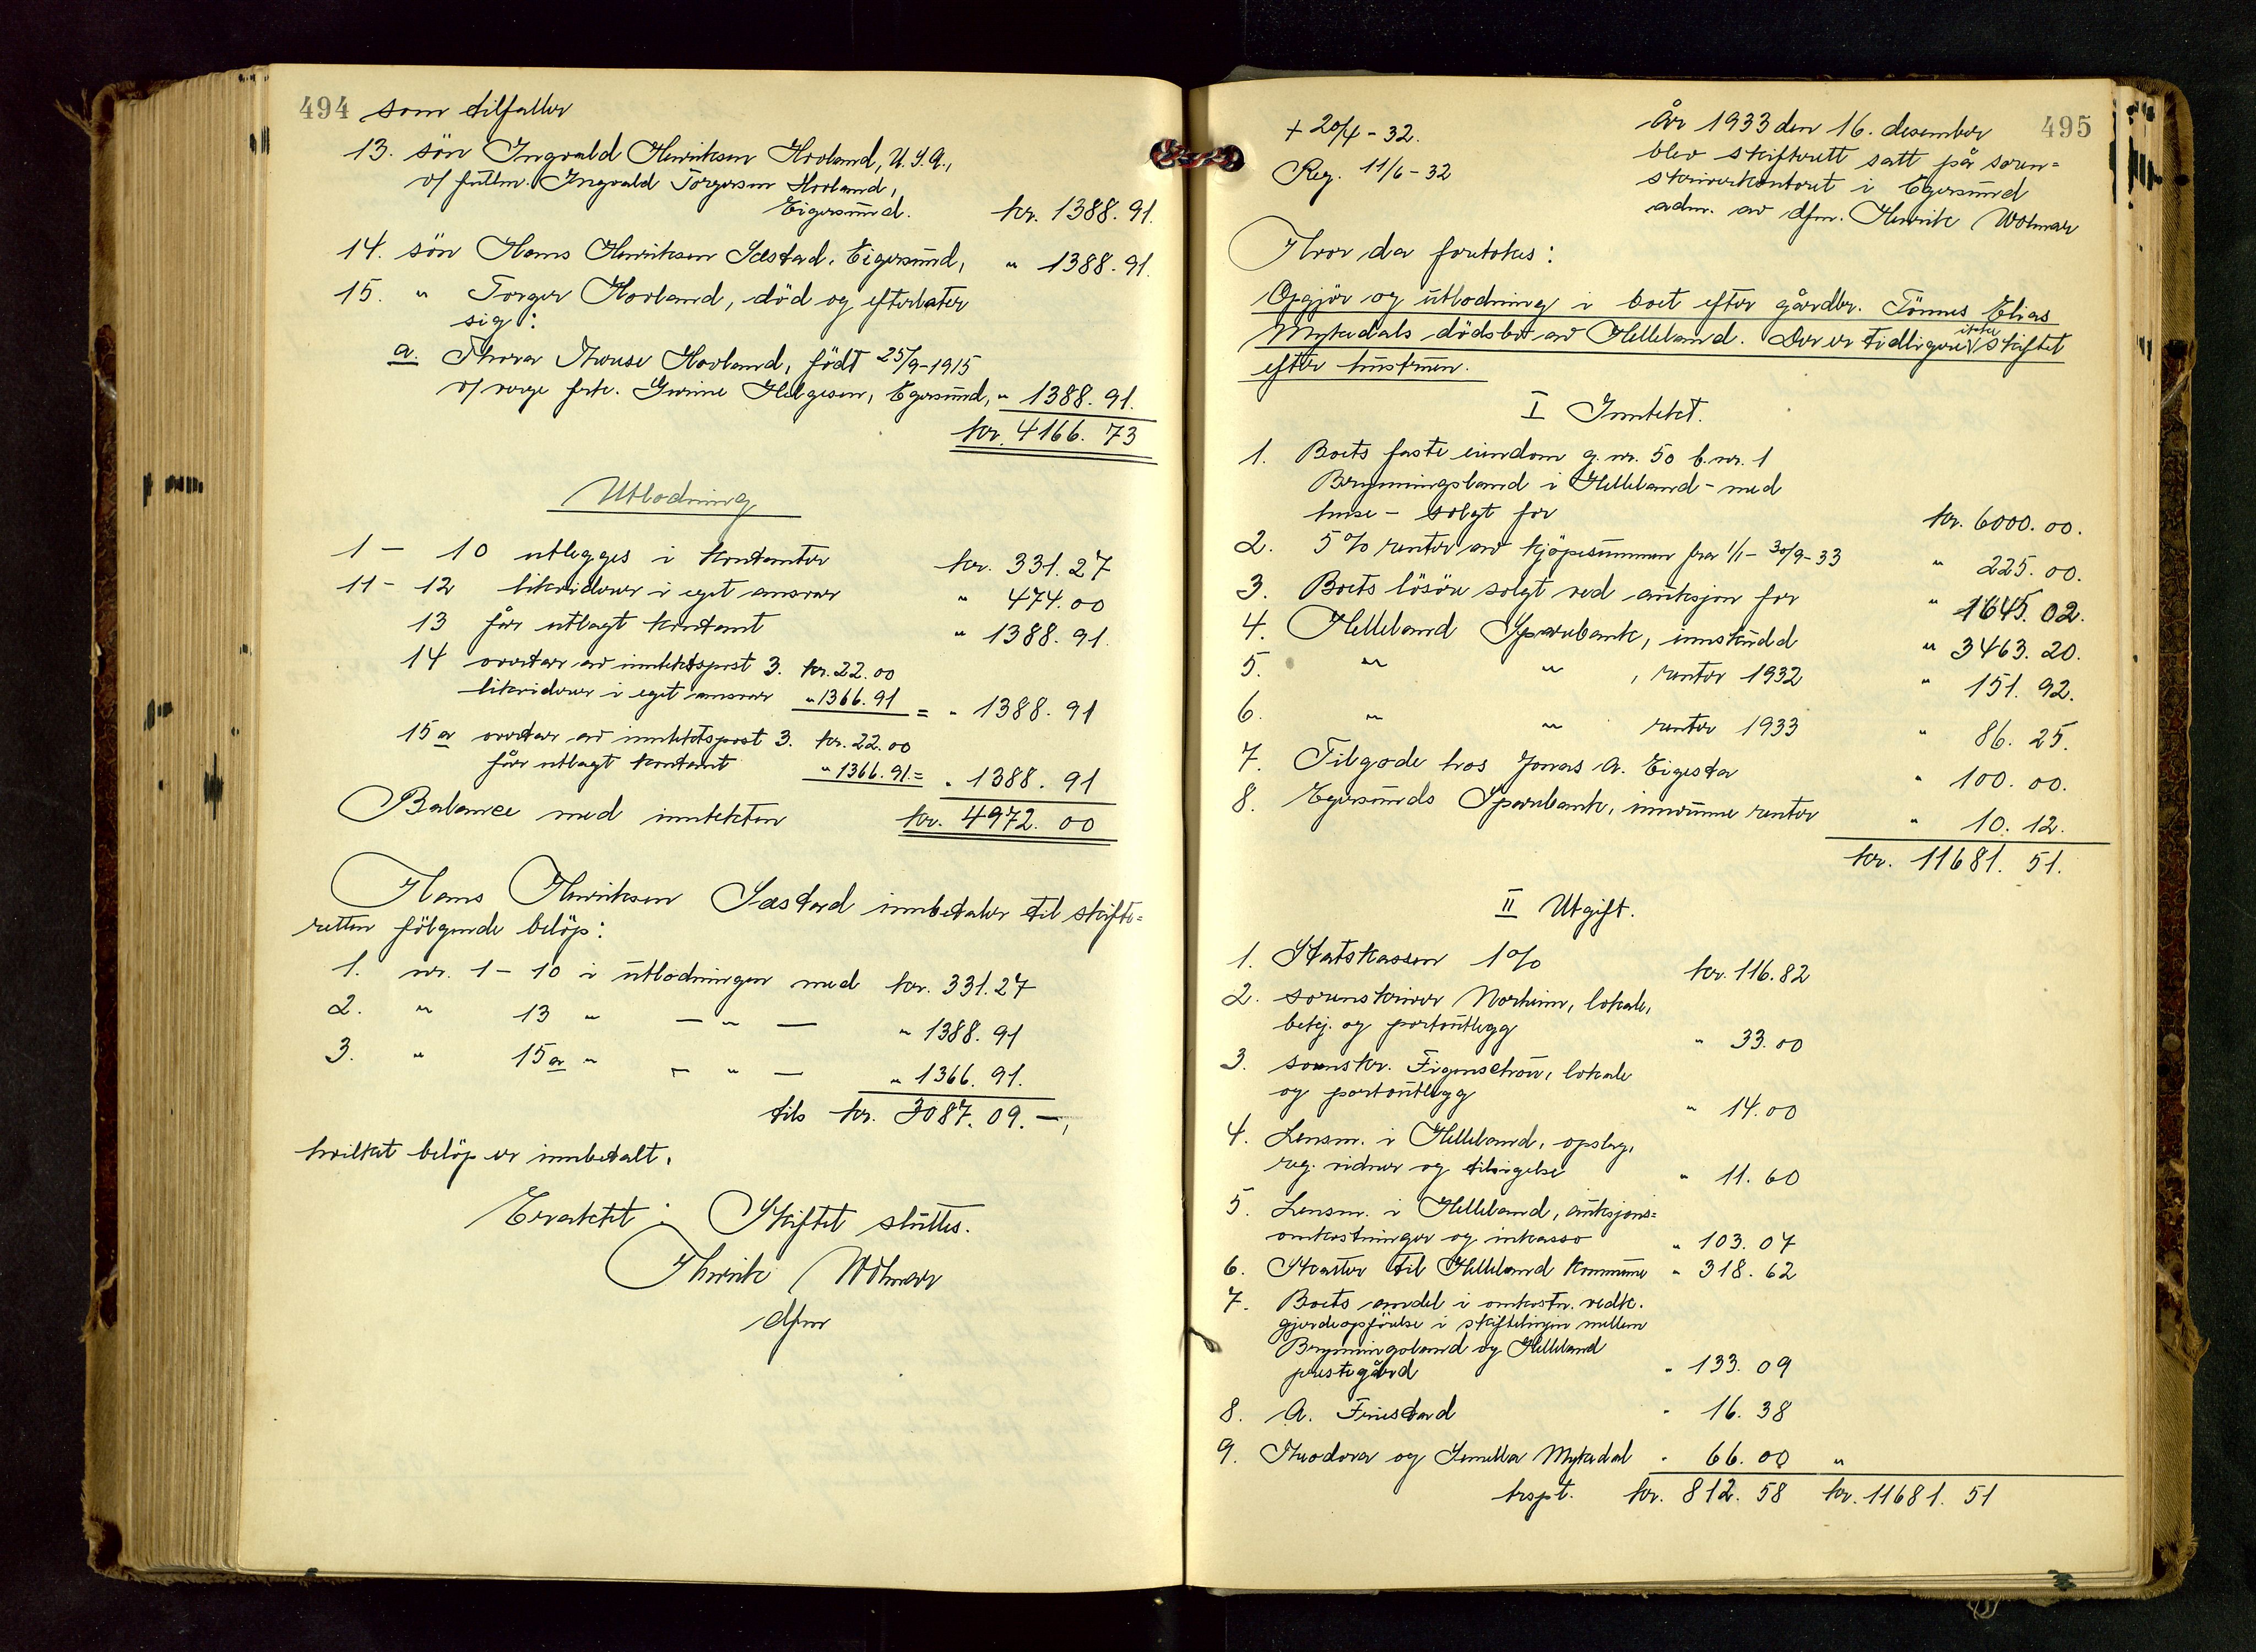 494 som tilfaller
13. sön Ingvald Henriksen Hovland, U.S.A.,
v/ fullm. Ingvald Torgersen Hovland,
Eigersund. kr. 1388.91.
14. sön Hans Henriksen Sæstad, Eigersund, " 1388.91.
15. " Torger Hovland, död og efterlater
sig:
a. Thora Therese Hovland, født 25/9-1915
v/ verge frk. Gurine Helgesen, Egersund, " 1388.91.
kr. 4166.73
Utlodning
1 - 10 utlegges i kontanter kr. 331.27
11 - 12 likviderer i eget ansvar " 474.00
13 får utlagt kontant " 1388.91.
14 overtar av inntektspost 3. kr. 22.00
likviderer i eget ansvar " 1366.91 = " 1388.91
15 a overtar av inntektspost 3. kr. 22.00
får utlagt kontant " 1366.91 = " 1388.91
Balance med inntekten kr. 4972.00
Hans Henriksen Sæstad innbetaler til skifte=
retten følgende beløp:
1. nr. 1 - 10 i utlodningen med kr. 331.27
2. " 13 " — " — " 1388.91
3. " 15 a " — " — " 1366.91.
tils kr. 3087.09. —,
hvilket beløp er innbetalt.
Eraktet: Skiftet sluttes.
Henrik Wolmar
dfm
495
+ 20/4 - 32.
Reg. 11/6 - 32
År 1933 den 16. desember
blev skifterett satt på soren=
skriverkontoret i Egersund
adm. av dfm. Henrik Wolmar
Hvor da foretokes:
Opgjör og utlodning i boet efter gårdbr. Tönnes Elias
Mykedals dödsbo av Helleland. Der er tidligere ikke skiftet
efter hustruen.
I Inntekt.
1. Boets faste eiendom g. nr. 50 b. nr. 1
Bryningsland i Helleland - med
huse - solgt for kr. 6000.00.
2. 5% renter av kjöpesummen fra 1/1 - 30/9 - 33 " 225.00.
3. Boets lösöre solgt ved auksjon for " 1645.02.
4. Helleland Sparebank, innskudd " 3463.20.
5. " " , renter 1932 " 151.92.
6. " " renter 1933 " 86.25.
7. Tilgode hos Jonas A. Eigestad " 100.00.
8. Egersunds Sparebank, innvunne renter " 10.12.
kr. 11681.51.
II Utgift.
1. Statskassen 1% kr. 116.82
2. sorenskriver Norheim, lokale,
betj. og portoutlegg " 33.00
3. sorenskr. Figenschou, lokale
og portoutlegg " 14.00
4. Lensm. i Helleland, opslag,
reg. vidner og tilsigelse " 11.60
5. Lensm. i Helleland, auksjons=
omkostninger og inkasso " 103.07
6. Skatter til Helleland kommune " 318.62
7. Boets andel i omkostn. vedk.
gjerdeopförelse i skiftelinjen mellem
Bryningsland og Helleland
prestegård " 133.09
8. A. Finestad " 16.38
9. Theodora og Semilla Mykedal " 66.00 "
trspt. kr. 812.58 kr. 11681.51